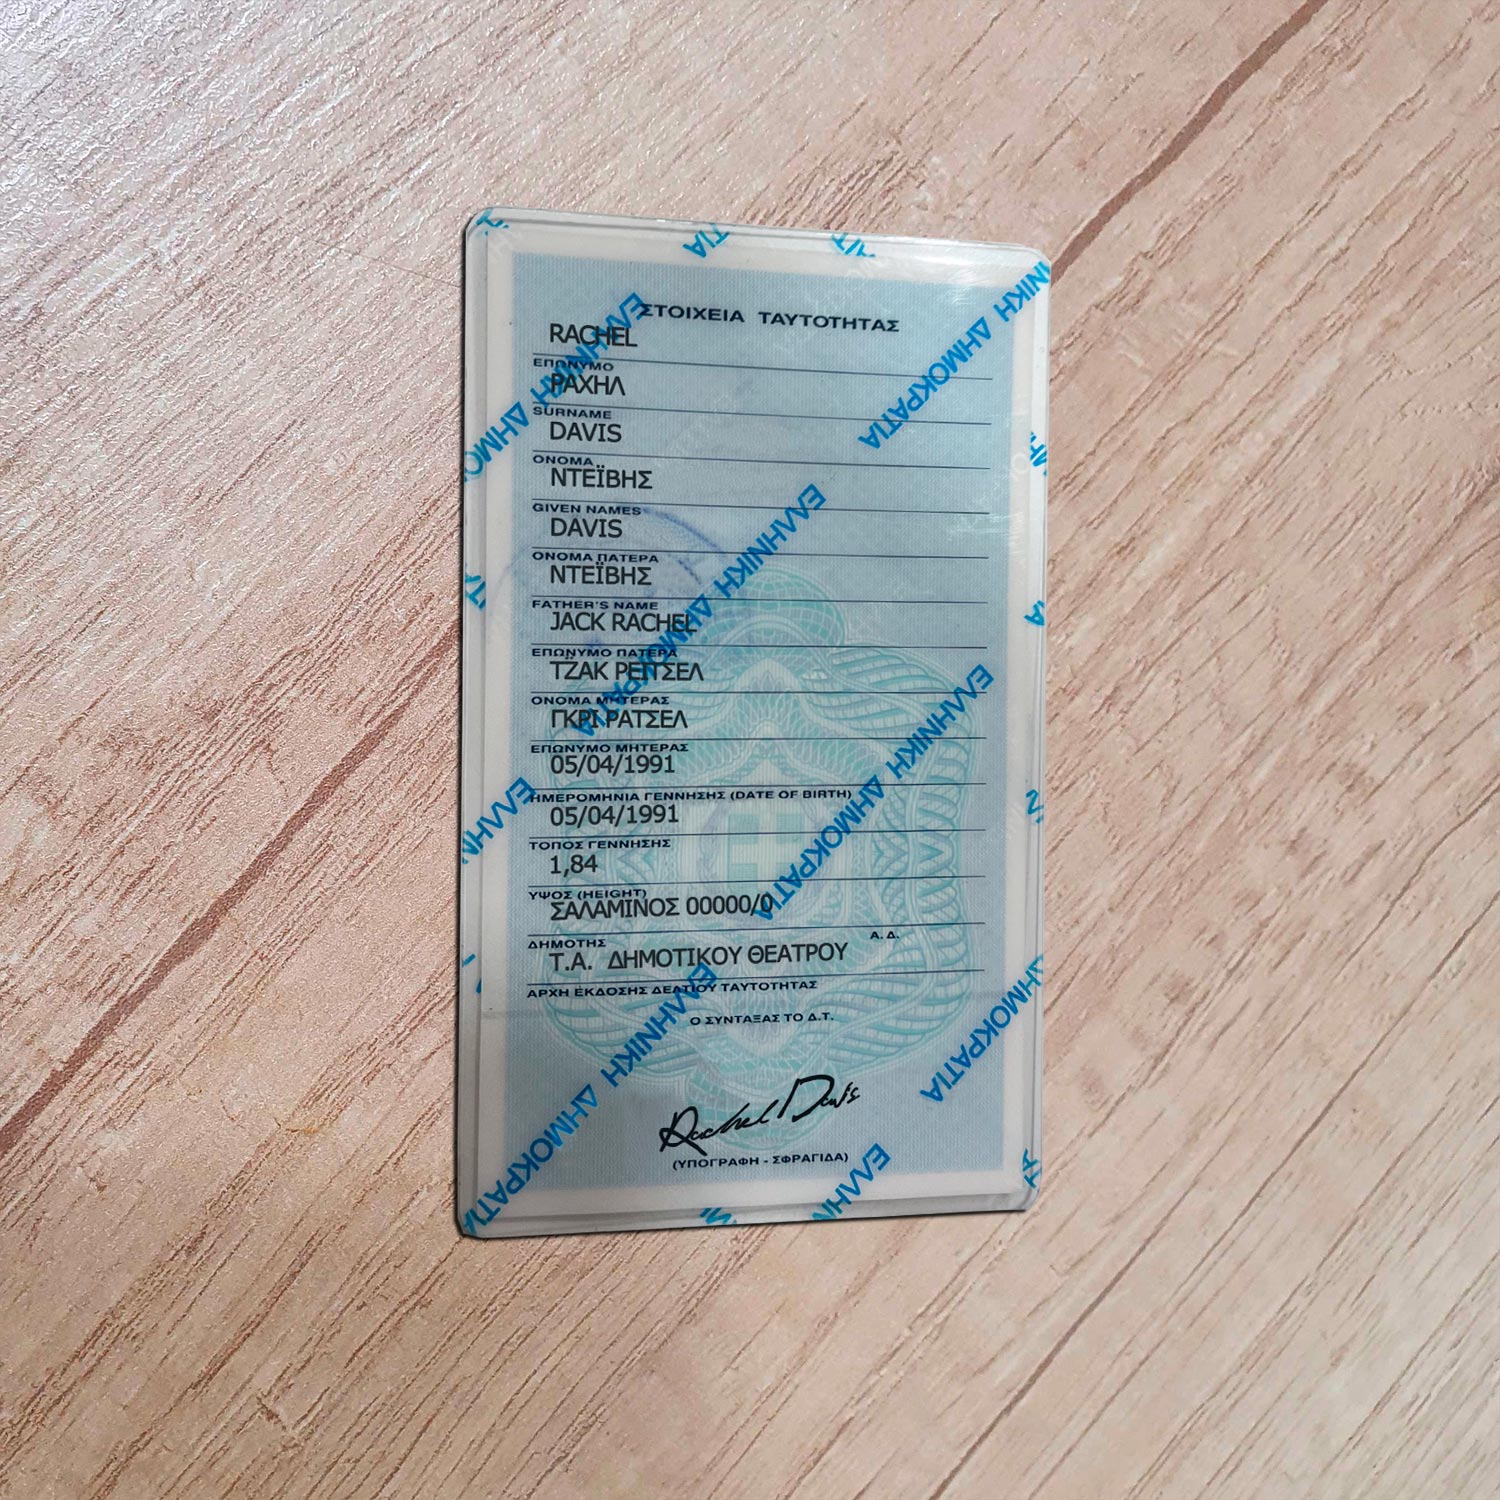 ΣΤΟΙΧΕΙΑ ΤΑΥΤΟΤΗΤΑΣ
RACHEL
ΕΠΩΝΥΜΟ
ΡΑΧΗΛ
SURNAME
DAVIS
ΟΝΟΜΑ
ΝΤΕΪΒΗΣ
GIVEN NAMES
DAVIS
ΟΝΟΜΑ ΠΑΤΕΡΑ
ΝΤΕΪΒΗΣ
FATHER'S NAME
JACK RACHEL
ΕΠΩΝΥΜΟ ΠΑΤΕΡΑ
ΤΖΑΚ ΡΕΙΤΣΕΛ
ΟΝΟΜΑ ΜΗΤΕΡΑΣ
ΓΚΡΙ ΡΑΤΣΕΛ
ΕΠΩΝΥΜΟ ΜΗΤΕΡΑΣ
05/04/1991
ΗΜΕΡΟΜΗΝΙΑ ΓΕΝΝΗΣΗΣ (DATE OF BIRTH)
05/04/1991
ΤΟΠΟΣ ΓΕΝΝΗΣΗΣ
1,84
ΥΨΟΣ (HEIGHT)
ΣΑΛΑΜΙΝΟΣ 00000/0
ΔΗΜΟΤΗΣ Α.Δ.
Τ.Α. ΔΗΜΟΤΙΚΟΥ ΘΕΑΤΡΟΥ
ΑΡΧΗ ΕΚΔΟΣΗΣ ΔΕΛΤΙΟΥ ΤΑΥΤΟΤΗΤΑΣ
Ο ΣΥΝΤΑΞΑΣ ΤΟ Δ.Τ.
Rachel Davis
(ΥΠΟΓΡΑΦΗ - ΣΦΡΑΓΙΔΑ)
ΕΛΛΗΝΙΚΗ ΔΗΜΟΚΡΑΤΙΑ
ΕΛΛΗΝΙΚΗ ΔΗΜΟΚΡΑΤΙΑ
ΕΛΛΗΝΙΚΗ ΔΗΜΟΚΡΑΤΙΑ
ΕΛΛΗΝΙΚΗ ΔΗΜΟΚΡΑΤΙΑ